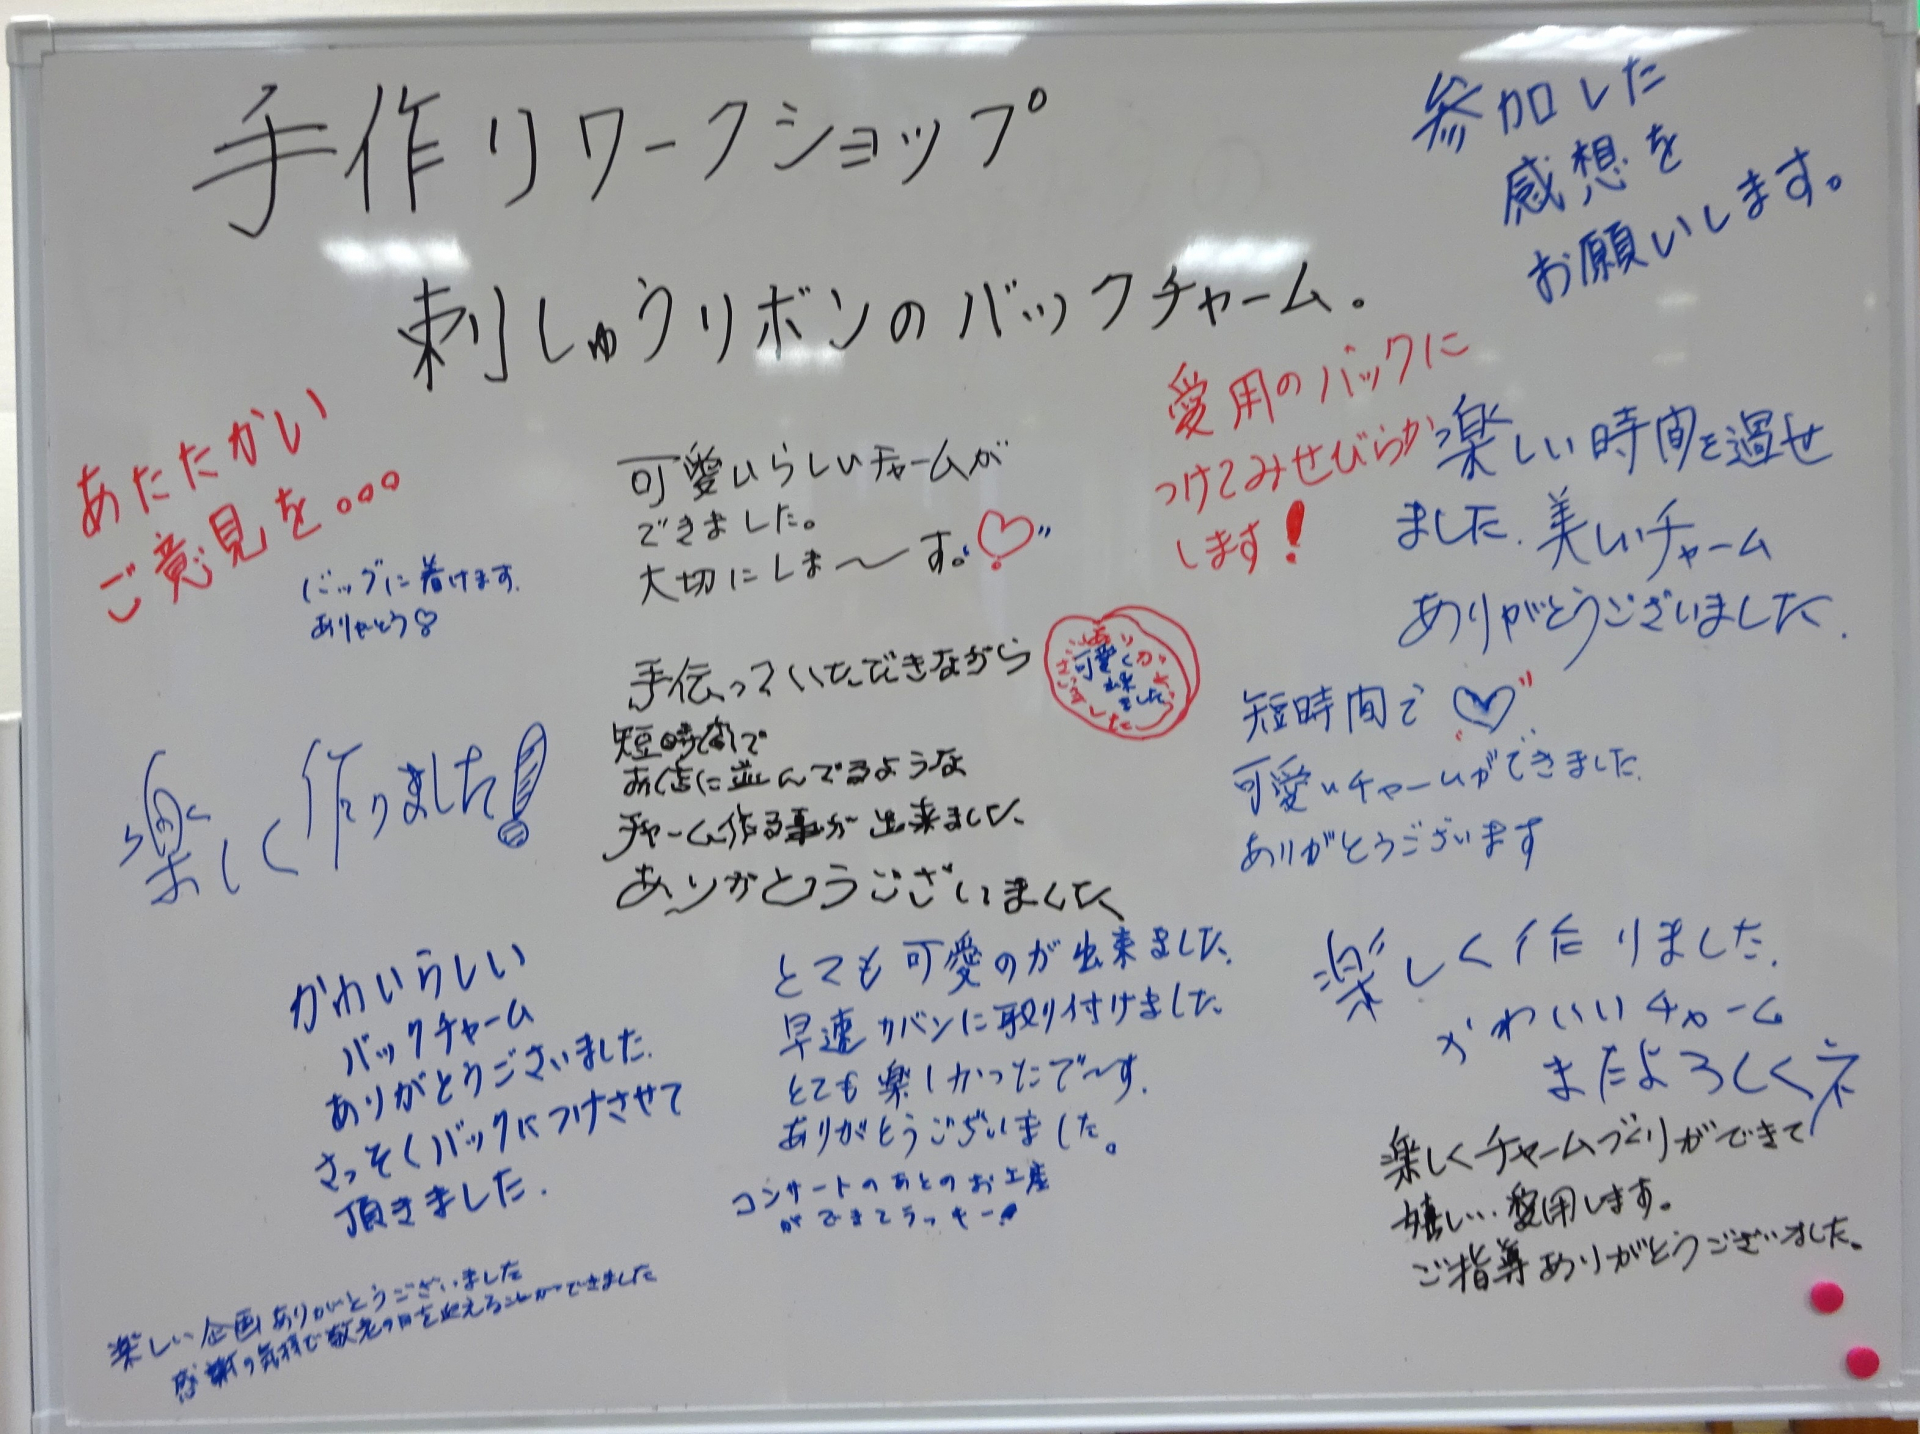 手作りワークショップ
刺しゅうリボンのバックチャーム。
参加した
感想を
お願いします。
あたたかい
ご意見を。。。
バッグに着けます。
ありがとう♡
可愛いらしいチャームが
できました。
大切にしま〜す。♡
愛用のバックに
つけてみせびらかっ
します!
楽しい時間を過せ
ました。美しいチャーム
ありがとうございました。
手伝っていただきながら
短時間で
お店に並んでるような
チャーム作る事が出来ました、
ありがとうございました
可愛く
出来
ました
短時間で♡
可愛いチャームができました。
ありがとうございます
楽しく作りました!
かわいらしい
バックチャーム
ありがとうございました。
さっそくバックにつけさせて
頂きました。
とても可愛のが出来ました。
早速カバンに取り付けました。
とても楽しかったで〜す。
ありがとうございました。
コンサートのあとのお土産
ができてラッキー!
楽しく作りました。
かわいいチャーム
またよろしくネ
楽しくチャームづくりができて
嬉しい・愛用します。
ご指導ありがとうございました。
楽しい企画ありがとうございました
感謝の気持で敬老の日を迎えることができました